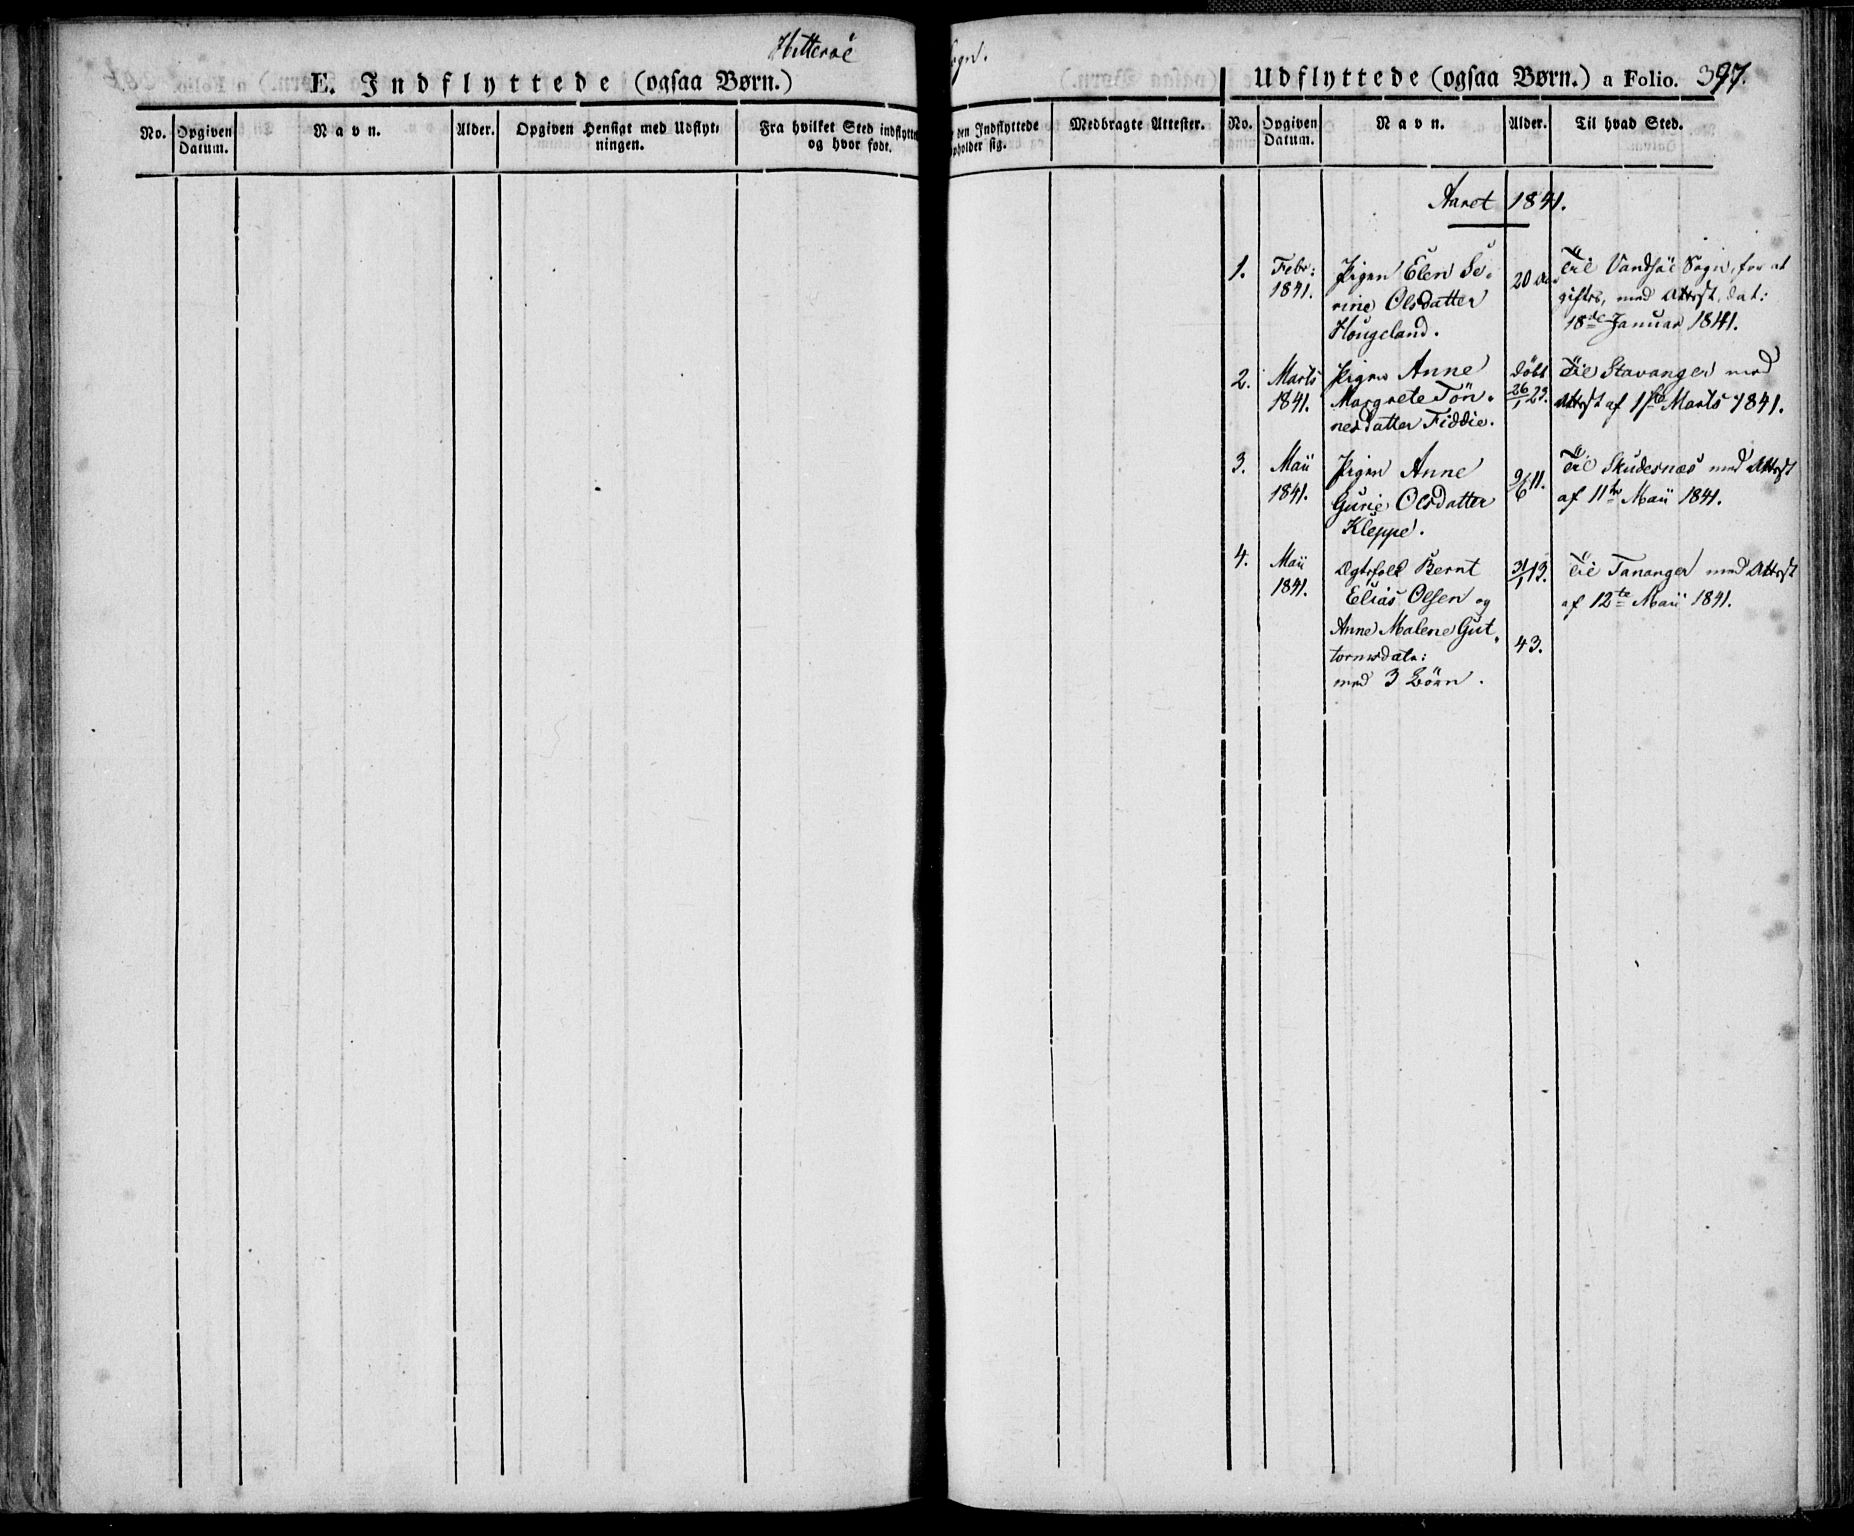 Hitteröe Sogn.
E. Indflyttede (ogsaa Børn.)
No.
Opgiven Datum.
Navn.
Alder.
Opgiven Hensigt med Udflyt-
ningen.
Fra hvilket Sted indflytte
og hvor født.
den Indflyttede
pholder sig.
Medbragte Attester.
Udflyttede (ogsaa Børn.) a Folio. 397.
No.
Opgiven Datum.
Navn.
Alder.
Til hvad Sted.
Aaret 1841.
1.
Febr:
1841.
Pigen Elen Se-
rine Olsdatter
Hougeland.
20 Aar
Til Vandsöe Sogn, for at
giftes, med Attest, dat:
18de Januar 1841.
2.
Marts
1841.
Pigen Anne
Margrete Tön-
nesdatter Fiddie.
döbt
26/1 23.
Til Stavanger med
Attest af 1ste Marts 1841.
3.
Maii
1841.
Pigen Anne
Gurie Olsdatter
Kleppe.
9/6 11.
Til Skudesnæs med Attest
af 11te Maii 1841.
4.
Maii
1841.
Ægtefolk Bernt
Elias Olsen og
Anne Malene Gut-
tormsdatr:
med 3 Börn.
31/1 13.
43.
Til Tananger med Attest
af 12te Maii 1841.